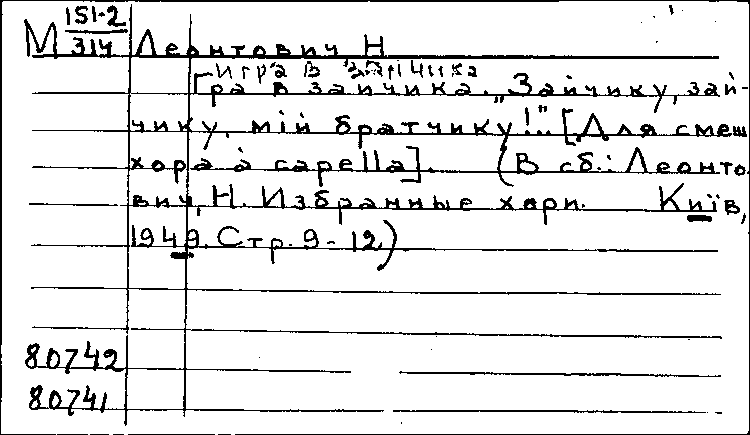 М 151-2/314 Леонтович Н
Игра в зайчика
Гра в зайчика. „Зайчику, зай-
чику, мій братчику!“.. [Для смеш
хора à capella]. (В сб.: Леонто
вич, Н. Избранные хори. Київ,
1949. Стр. 9-12.)
80742
80741